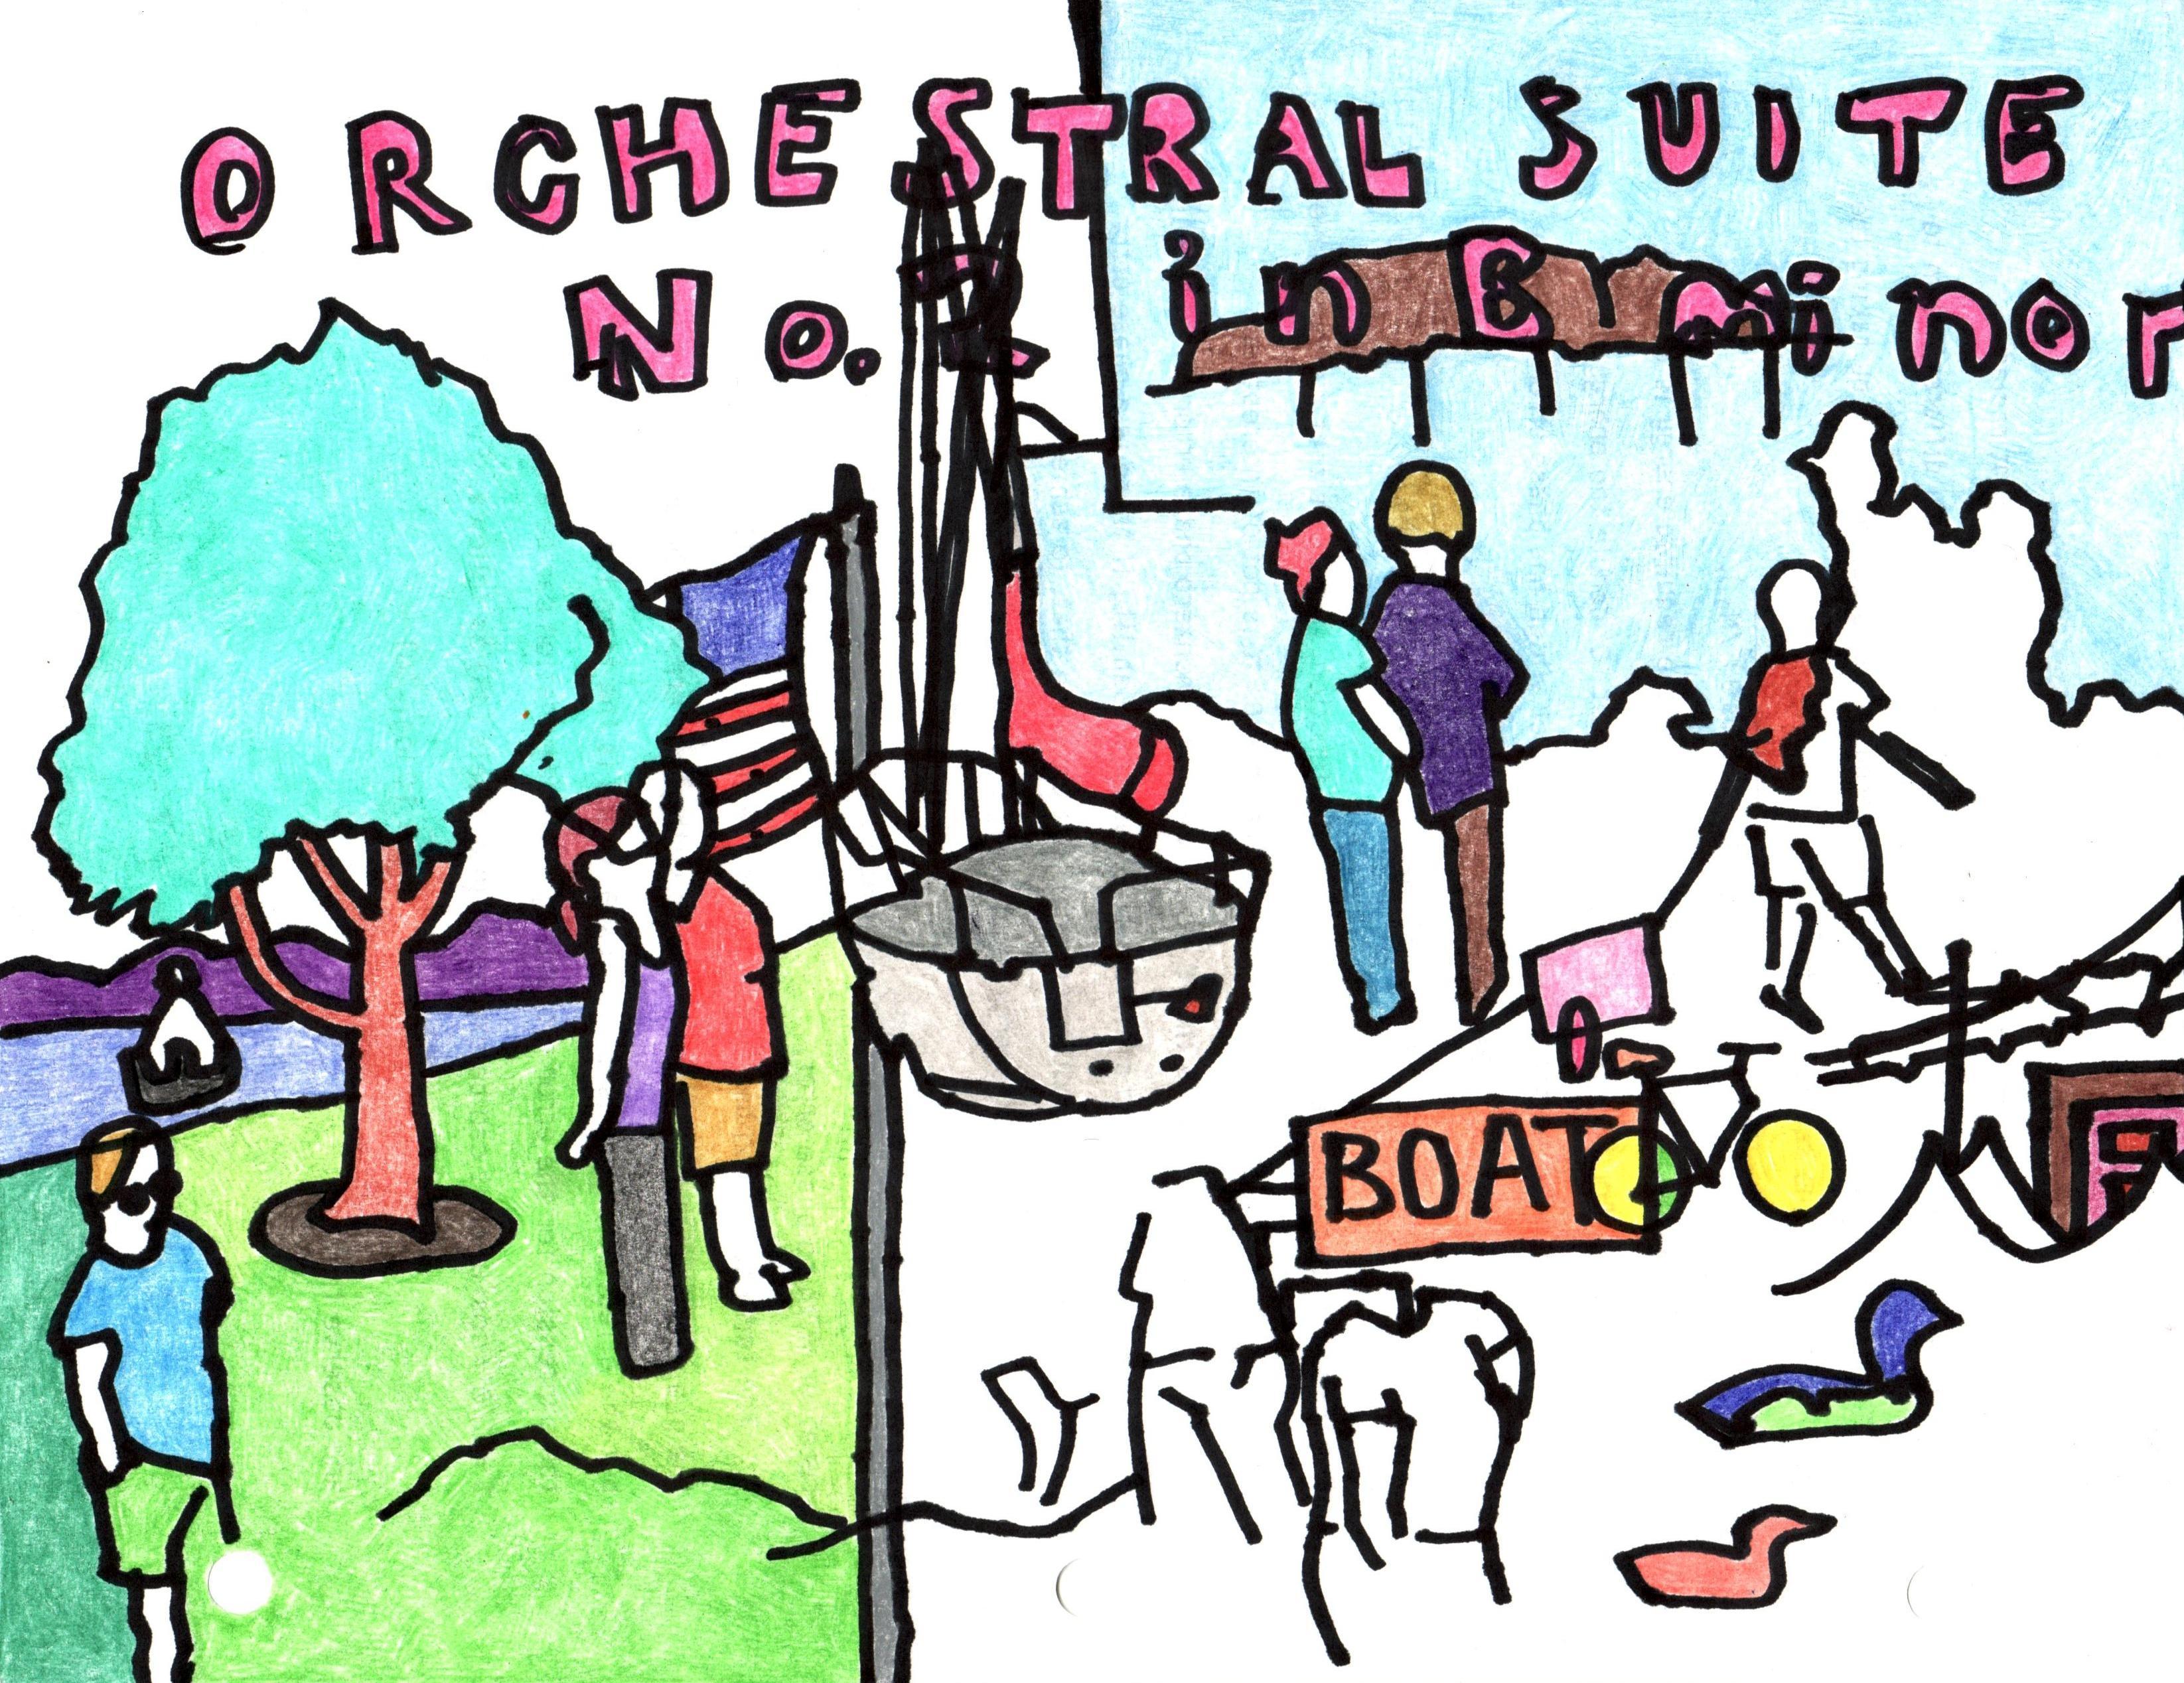 ORCHESTRAL SUITE
No. 2 in B minor
BOAT